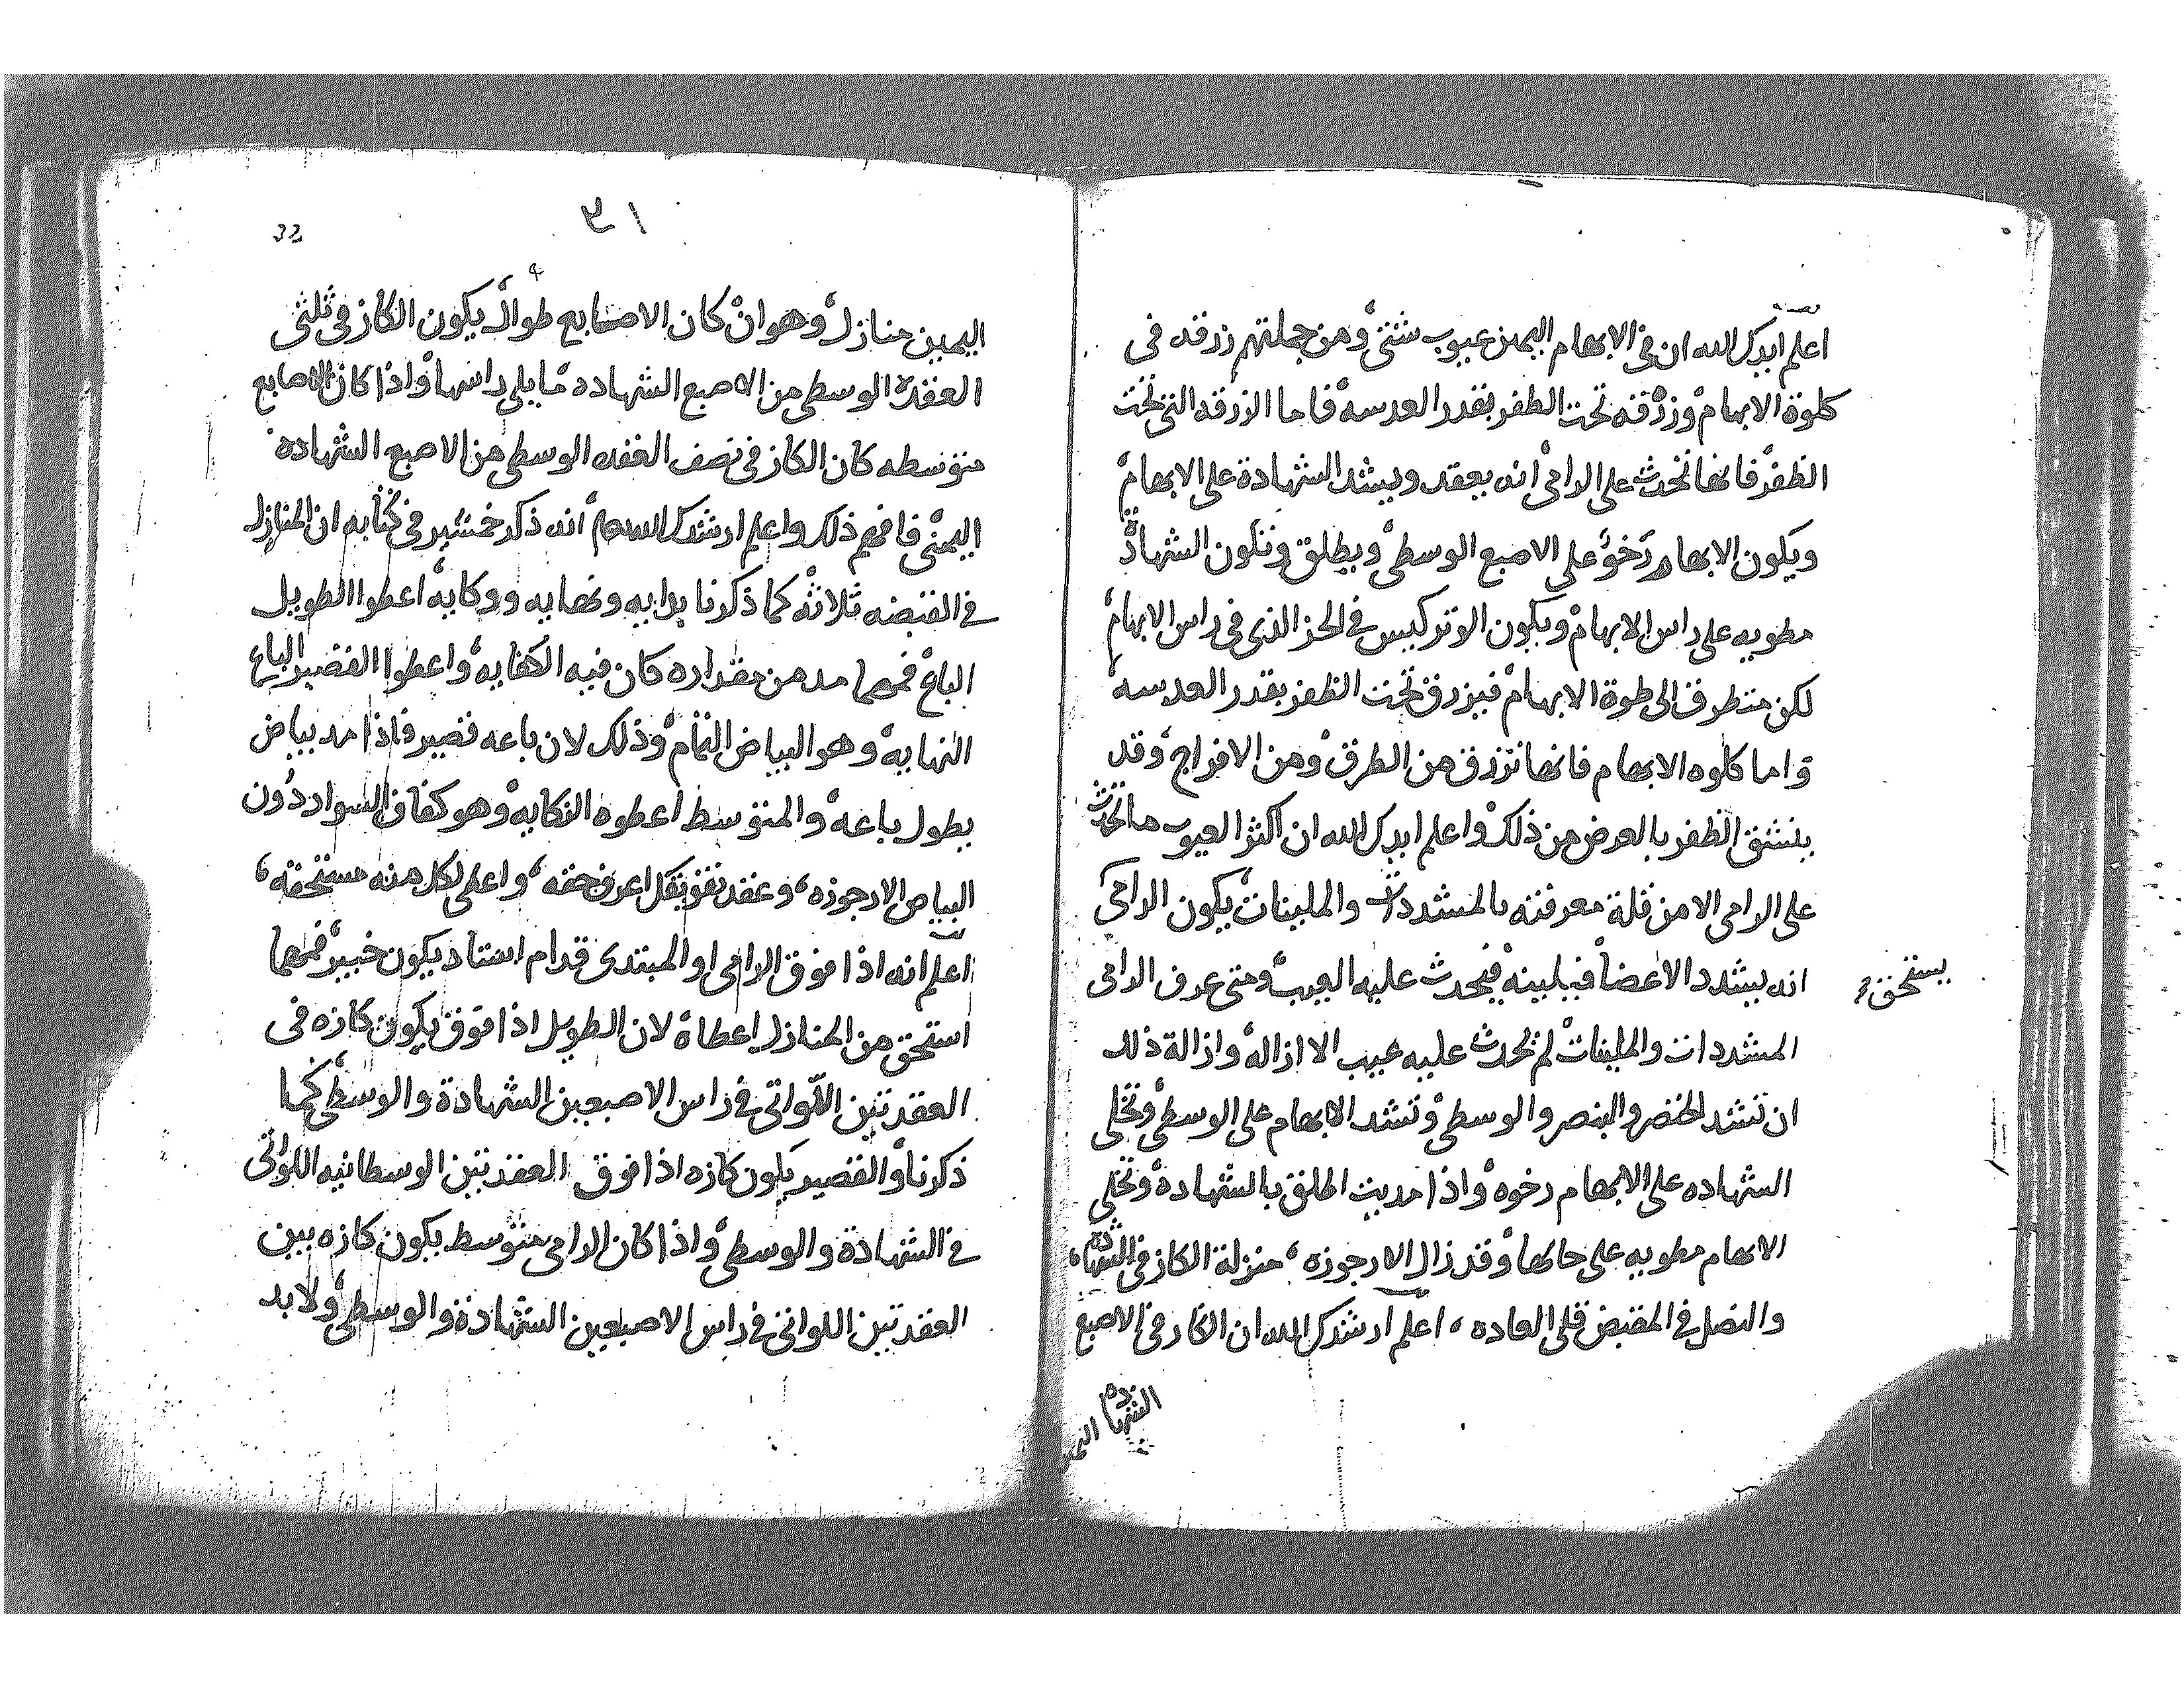 اعلم ايدك الله ان فى الابهام اليمين عيوب شتى ومن جملتهم زرقه فى
كلوة الابهام وزرقه تحت الظفر بقدر العدسه فاما الزرقه التى تحت
الظفر فانها تحدث على الرامى انه يعقد ويشد الشهادة على الابهام
ويكون الابهام رخو على الاصبع الوسطى ويطلق وتكون الشهاده
مطويه على راس الابهام ويكون الوتر كيس فى الحز الذى فى راس الابهام
لكن متطرف الى طوة الابهام فيزرق تحت الظفر بقدر العدسه
واما كلوه الابهام فانها تزرق من الطرق ومن الافراج وقد
ينشق الظفر بالعرض من ذلك واعلم ايدك الله ان اكثر العيوب ما تحدث
على الرامى الا من قلة معرفته بالمشددات والملينات يكون الرامى
يستحق
انه يشدد الاعضا فيلينه فيحدث عليه العيب ومتى عرف الرامى
المشددات والملينات لم يحدث عليه عيب الا ازاله وازالة ذلك
ان تشد الخنصر والبنصر والوسطى وتشد الابهام على الوسطى وتخلى
الشهاده على الابهام رخوه واذا مديت اطلق بالشهادة وتخلى
الابهام مطويه على حالها وقد زال الارجوزه منزلة الكاز فى الشهاده
والنصل فى المقبض على العاده اعلم ارشدك الله ان الكاز فى الاصبع
الشهاده
٣١
32
اليمين منازل وهو ان كان الاصابع طوال يكون الكاز فى ثلثى
العقدة الوسطى من الاصبع الشهاده مما يلى راسها واذا كان الاصابع
متوسطه كان الكاز فى نصف العقده الوسطى من الاصبع الشهاده
اليمنى فافهم ذلك واعلم ارشدك الله انه ذكر فى كتابه ان المنازل
فى القبضه ثلاثة كما ذكرنا بدايه ونهايه ووكايه اعطوا الطويل
الباع فمهما مد من مقداره كان فيه الكفايه واعطوا القصير الباع
النهايه وهو البياض التمام وذلك لان باعه قصير فاذا مد بياض
يطول باعه والمتوسط اعطوه النكايه وهو كفاف السواد دون
البياض الارجوزه وعقد تفويقك اعرف حقه واعطى لكل منه مستحقه
اعلم انه اذا فوق الرامى او المبتدى قدام استاد يكون خبير فمهما
استحق من المنازل اعطاه لان الطويل اذا فوق يكون كازه فى
العقدتين اللواتى فى راس الاصبعين الشهادة والوسطى كما
ذكرنا والقصير يكون كازه اذا فوق العقدتين الوسطانيه اللواتى
فى الشهادة والوسطى واذا كان الرامى متوسط يكون كازه بين
العقدتين اللواتى فى راس الاصبعين الشهادة والوسطى ولا بد